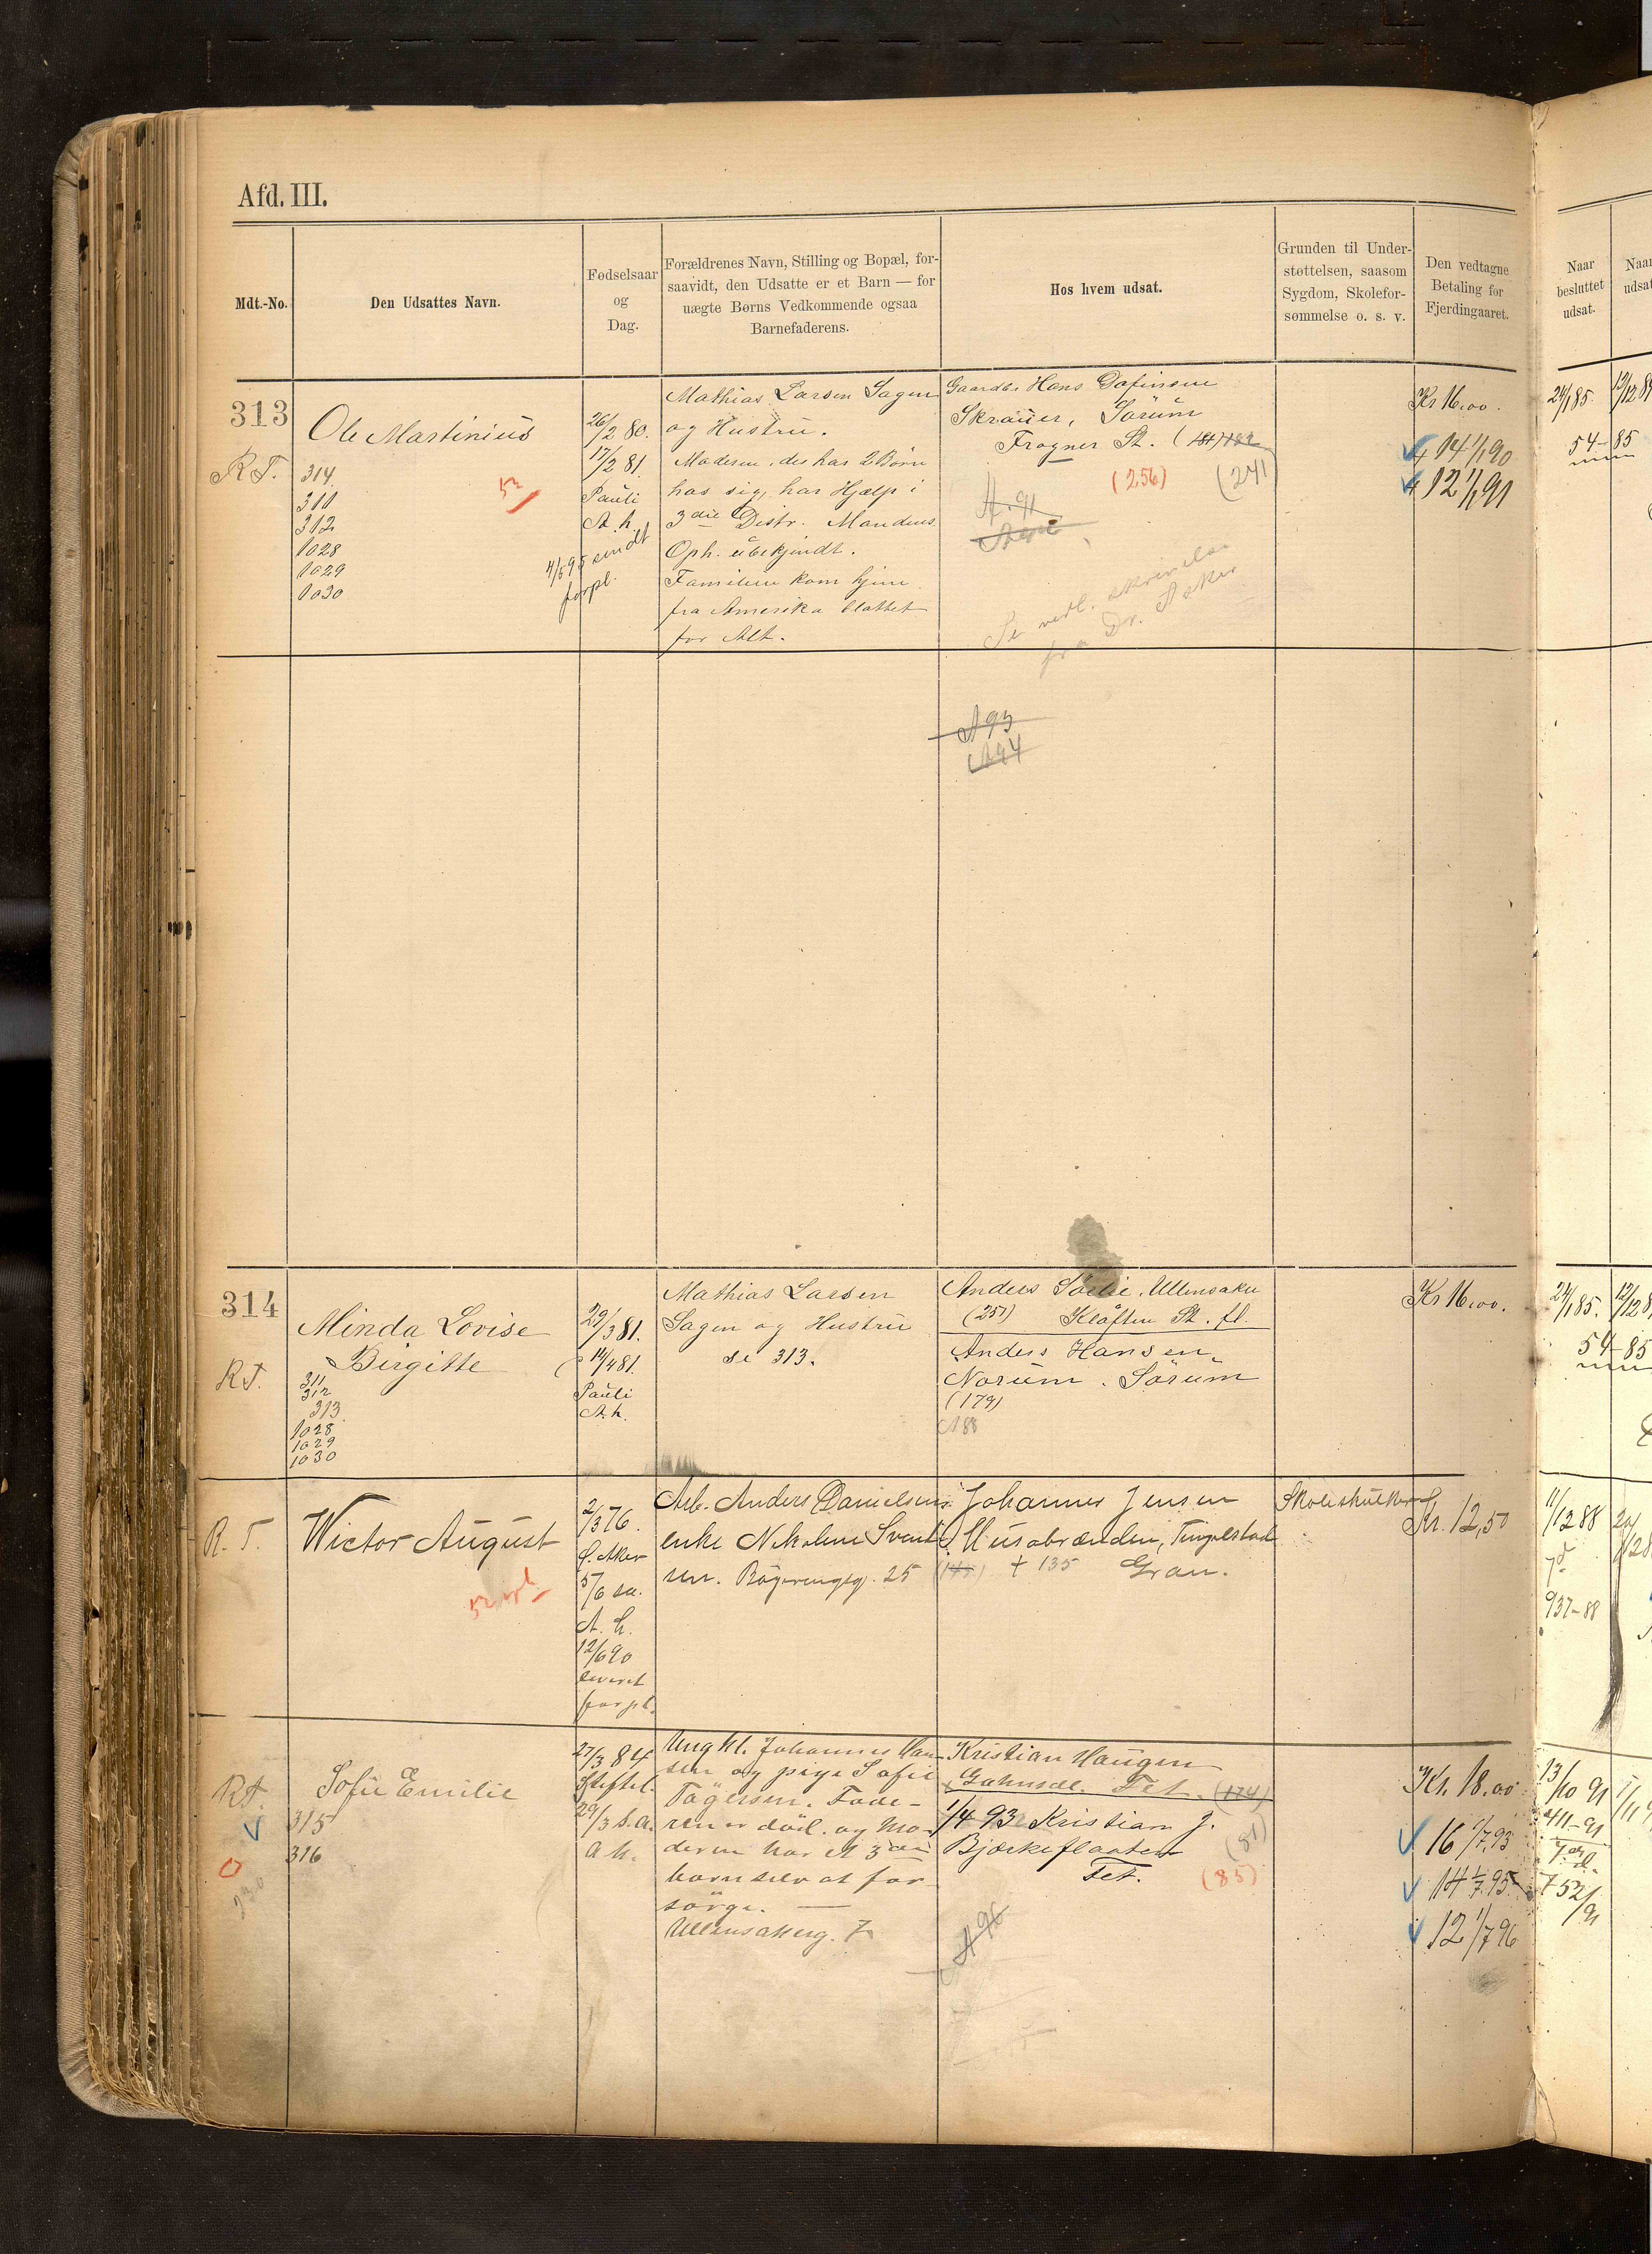 Afd. III.
Mdt.-No.
Den Udsattes Navn.
Fødselsaar
og
Dag.
Forældrenes Navn, Stilling og Bopæl, for-
saavidt, den Udsatte er et Barn — for
uægte Børns Vedkommende ogsaa
Barnefaderens.
Hos hvem udsat.
Grunden til Under-
støttelsen, saasom
Sygdom, Skolefor-
sømmelse o. s. v.
Den vedtagne
Betaling for
Fjerdingaaret.
Naar
besluttet
udsat.
Naar
udsat
313
R.T.
Ole Martinius
314.
311
312
1028
1029
1030
52
26/2 80.
17/2 81.
Pauli
A. h.
4/5 95 sendt
forpl.
Mathias Larsen Sagen
og Hustru.
Moderen, der har 2 Børn
hos sig, har Hjælp i
3die Distr. Mandens
Oph. ubekjendt.
Familien kom hjem
fra Amerika blottet
for Alt.
Gaardbr. Hans
Skrauer, Sørum
Frogner St. (181)
(256)
(241)
A. 91
Se vedl. skrivelse
fra Dr. Asker
A 93
A 94
Kr 16.00.
14 1/1 90
12 1/1 91
24/1 85.
54-85
314
R.T.
Minda Lovise
Birgitte
311
312
313.
1028
1029
1030
29/3 81.
14/4 81.
Pauli
A. h.
Mathias Larsen
Sagen og Hustru
se 313.
Anders Sørlie, Ullensaker
(251) Kløften St.
Anders Hansen,
Norum. Sørum
(179)
A 88
Kr 16.00.
24/1 85.
54-85
R. T.
Wictor August
2/3 76.
f. Aker
5/6 s.a.
A. h.
12/6 90
leveret
forpl.
Arb. Anders Danielsens
enke Nikoline Svend-
sen. 25
Johannes Jensen
Husabrænden, Tingelstad
+ 135 Gran.
Skoleskulkeri
Kr. 12,50
11/12 88
937-88
R.T.
Sofie Emilie
315
316
27/3 84
Stiftel.
29/3 s.a.
A h.
Ungkl. Johannes Han-
sen og pige Sofie
Tøgersen. Fade-
ren er død. og Mo-
deren har et
barn selv at for-
sørge. —
Ullensakerg. 7
Kristian Haugen
Fet. (174)
1/4 93 Kristian J.
Bjørkeflaaten
Fet.
(81)
(85)
A 96
Kr. 18.00
16 1/7 93
14 1/7 95
12 1/7 96
13/10 91
411-91
52/91